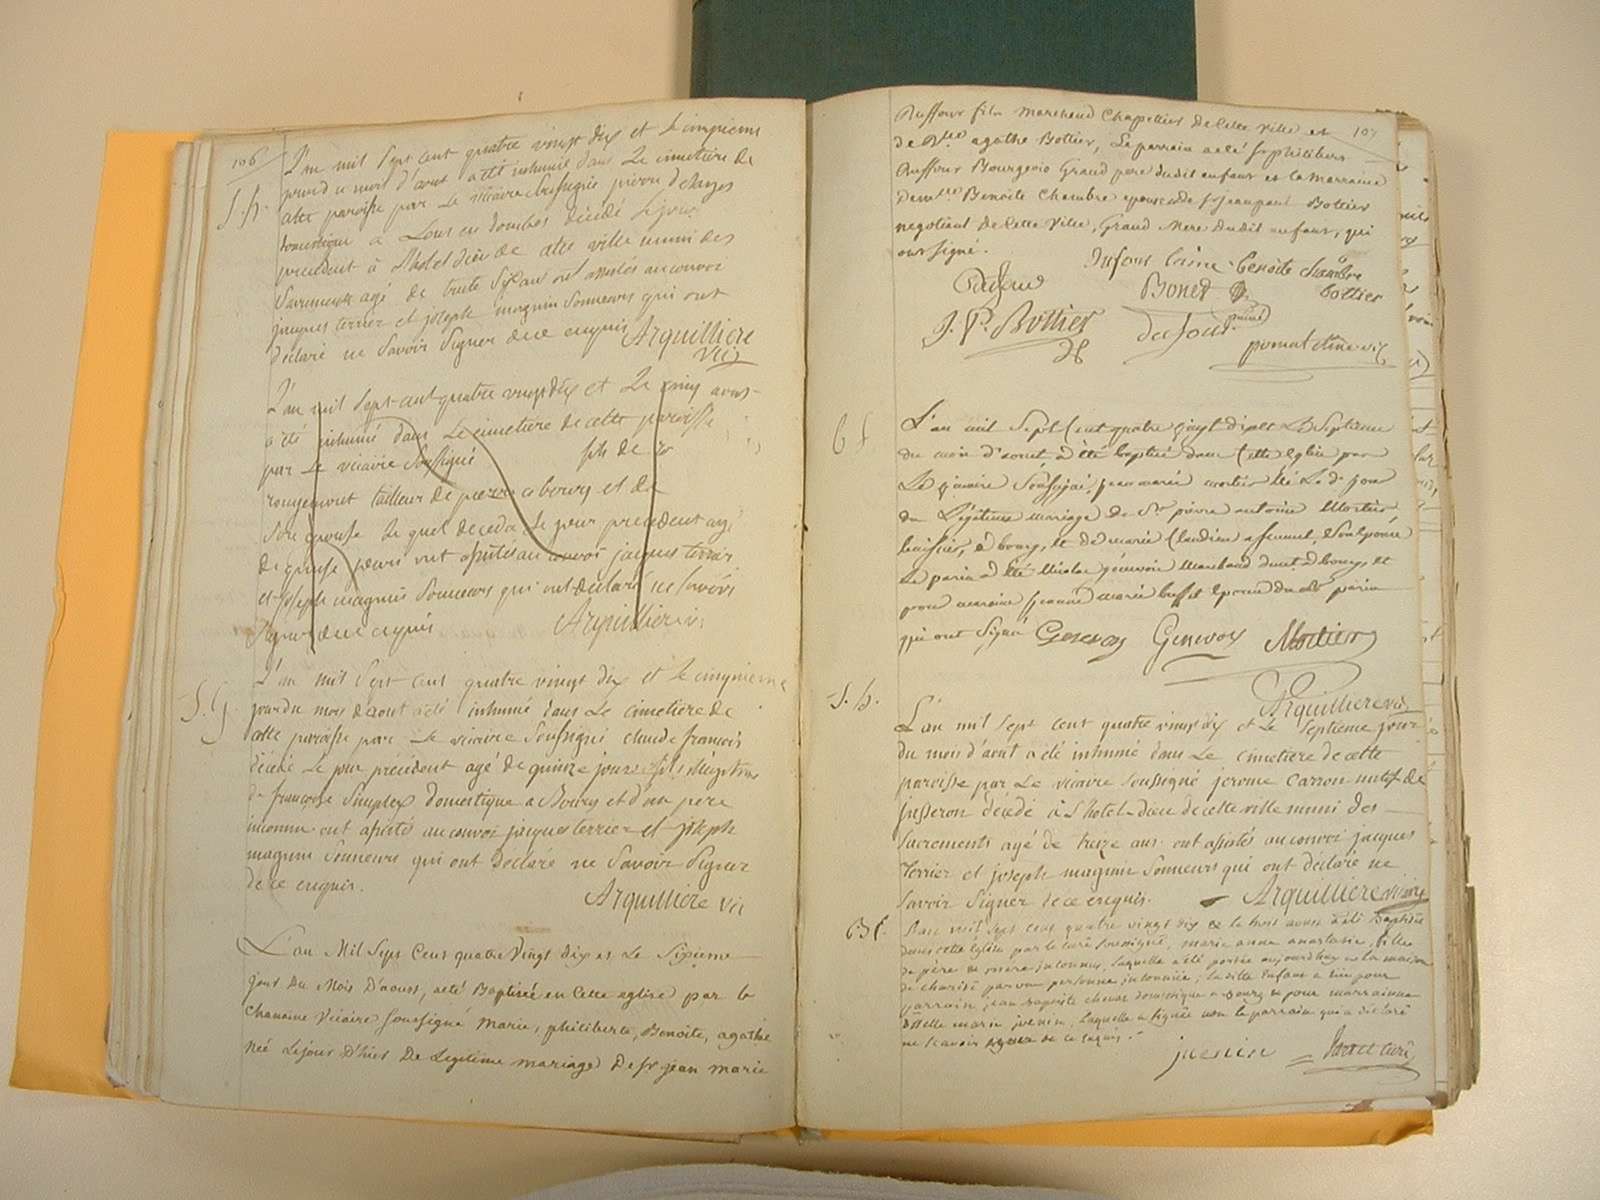 106
L'an mil sept cent quatre vingt dix et le cinquieme
jour du mois d'aout a été inhumé dans Le cimetiere de
cette paroisse par Le vicaire soussigné pierre
domestique a en dombes décédé Le jour
precedent à L'hotel dieu de cette ville muni des
sacrements agé de trente ont assistés au convoi
jacques terrier et joseph magnin sonneurs qui ont
déclaré ne savoir signer de ce enquis Arquilliere
vic
S.h.
L'an mil sept cent quatre vingt dix et Le cinq aout
a été inhumé dans Le cimetiere de cette paroisse
par Le vicaire soussigné fils de
rougemont tailleur de pierre a bourg et de
son epouse Le quel decedé Le jour precedent agé
de quinse jours ont assistés au convoi jacques terrier
et joseph magnin sonneurs qui ont declaré ne savoir
signer de ce enquis Arquilliere vic
S.G.
L'an mil sept cent quatre vingt dix et le cinquieme
jour du mois d'aout a été inhumé dans Le cimetiere de
cette paroisse par Le vicaire soussigné claude francois
décédé Le jour précédent agé de quinze jours fils illegitime
de francoise Simplex domestique a Bourg et d'un pere
inconnu ont assisté au convoi jacques terrier et joseph
magnin sonneurs qui ont déclaré ne savoir signer
de ce enquis. Arquilliere vic
L'an Mil Sept Cent quatre Vingt Dix et Le Sixieme
jour Du Mois D'aoust, a eté Baptisée en Cette eglise par le
Chanoine Vicaire soussigné Marie, philiberte, Benoite, agathe
Née Le jour D'hier De Legitime mariage De sr jean marie
107
fils Marchand Chapellier De Cette Ville et
de Dlle agathe Bottier, Le parrain a eté sr philibert
Bourgeois Grand pere dudit enfant et la Marraine
Demlle Benoite Chambre epouse de sr jean paul Bottier
negotiant de Cette Ville, Grand Mere Dudit enfant, qui
ont signé. L'aine Benoite chambre
Bonet bottier
J. P. Bottier
B f
L'an mil Sept Cent quatre vingt dix et Le Septieme
du mois d'aout a été baptisé dans Cette Eglise par
Le vicaire Soussigné, jeanne marie mortier née Le d. jour
du Légitime mariage de Sr pierre antoine Mortier
huissier, a bourg, et de marie Claudine Son Epouse
Le parin a été Nicolas genevois Marchand a bourg, et
pour maraine jeanne marie buffet epouse du dt parin
qui ont Signé Genevois Genevois Mortier
Arquilliere vic
S.h.
L'an mil sept cent quatre vingt dix et Le septieme jour
Du mois d'aout a été inhumé dans Le cimetiere de cette
paroisse par Le vicaire soussigné jerome Carron natif de
jusseron décédé à L'hotel-Dieu de cette ville muni des
sacrements agé de treize ans ont assistés au convoi jacques
terrier et joseph magnin sonneurs qui ont déclaré ne
savoir Signer de ce enquis. Arquilliere vicaire
B f.
L'an mil sept cent quatre vingt dix & le huit aoust a été Baptisée
dans cette église par le curé soussigné, marie anne anastasie, fille
de père & mère inconnus, laquelle a été portée aujourd'huy a la maison
de charité par une personne inconnue; la ditte Enfant a eu pour
parrain jean baptiste domestique a bourg & pour marrainne
Dlle marie juenin, laquelle a signée non le parrain qui a declaré
ne scavoir signer de ce requis.
juenin curé